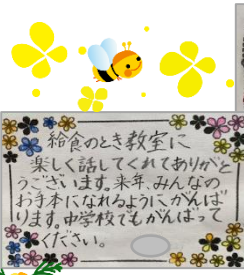 給食のとき教室に
楽しく話してくれてありがと
うございます。来年、みんなの
お手本になれるようにがんば
ります。中学校でもがんばって
ください。